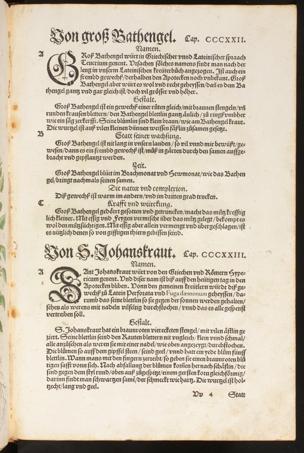 Von groß Bathengel. Cap. CCCXXII.
Namen.
A
Groß Bathengel würt in Griechischer vnnd Lateinischer spraach
Teucrium genent. Vrsachen sölches namens findt man nach der
leng in vnserm Lateinischen kreüterbůch angezogen. Ist auch ein
frembd gewechß / derhalben den Apotecken noch vnbekant. Groß
Bathengel aber würt es wol vnd recht geheyssen / daß es dem Ba
thengel gantz vnd gar gleich ist / doch vil grösser vnd höher.
Gestalt.
Groß Bathengel ist ein gewechß einer růten gleich / mit braunen stengeln / vñ
runden krausen blettern / den Bathengel blettlin gantz änlich /
wie ein seeg zerkerfft. Seine blümlin seind klein braun / wie am Bathengel kraut.
Die wurtzel ist auß vilen kleinen dünnen weissen zäßlin zůsamen gesetzt.
Statt seiner wachsung.
B
Groß Bathengel ist nit lang in vnsern landen / so vil vnnd mir bewüßt / ge-
wesen / dann es ein frembd gewechß ist / můß in gärten durch den samen auffge-
bracht vnd gepflantzt werden.
Zeit.
Groß Bathengel blüet im Brachmonat vnd Hewmonat / wie das Bathen
gel / bringt nachmals seinen samen.
Die natur vnd complexion.
Diß gewechß ist warm im andern / vnd im dritten grad trucken.
Krafft vnd würckung.
C
Groß Bathengel gedört gesotten vnd getruncken / macht das miltz krefftig
lich kleiner. Mit essig vnd Feygen vermischt über das miltz gelegt / bekompt es
wol den miltzsüchtigen. Mit essig aber allein vermengt vnd übergeschlagen / ist
es nützlich denen so von gifftigen thiern gebissen seind.
Von S. Johanskraut. Cap. CCCXXIII.
Namen.
A
Sant Johanskraut würt von den Griechen vnd Römern Hype-
ricum genent. Vnd diser nam ist biß auff den heütigen tag in den
Apotecken bliben. Vonn den gemeinen kreütlern würdt diß ge-
wechß zů Latein Perforata vnd Fuga dæmonum geheyssen / da-
rumb das seine blettlin so sie gegen der sonnen werden gehalten /
sehen als weren es mit nadeln völlig durchstochen / vnnd das es alle gespenst
vertreiben soll.
Gestalt.
S. Johanskraut hat ein braunroten viereckten stengel / mit vilen ästlin ge
ziert. Seine blettlin seind den Rauten blettern nit vngleich / klein vnnd schmal /
alle anzůsehen als weren sie mit einer nadel / wie oben angezeygt / durchstochen.
Die blůmen so auff den gipffel steen / seind geel / vnnd hat ein yede blům fünff
blettlin. Wann mans mit den fingern zerreibt / so geben sie einen braunroten blů
tigen safft vonn sich. Nach abfallung der blůmen komen hernach schötlin / die
seind gegen dem styl rund / oben auß zůgespitzt / einem gersten korn gleichförmig /
darinn findt man schwartzen samen / der schmeckt wie hartz. Die wurtzel ist hol-
tzecht / lang vnd geel.
Vv 4 Statt